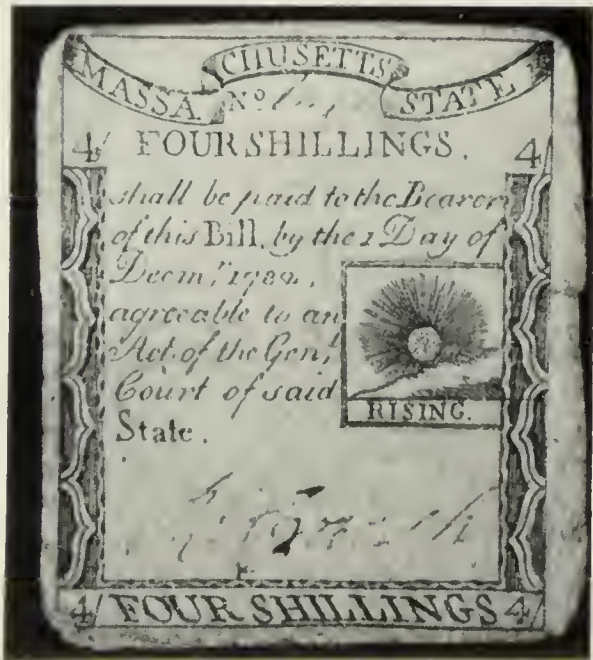 MASSA CHUSETTS STATE
No
4/ FOUR SHILLINGS. 4/
shall be paid to the Bearer
of this Bill, by the 1 Day of
Decmr. 1782,
agreeable to an
Act of the Genl.
Court of said
State.
RISING.
4/ FOUR SHILLINGS 4/